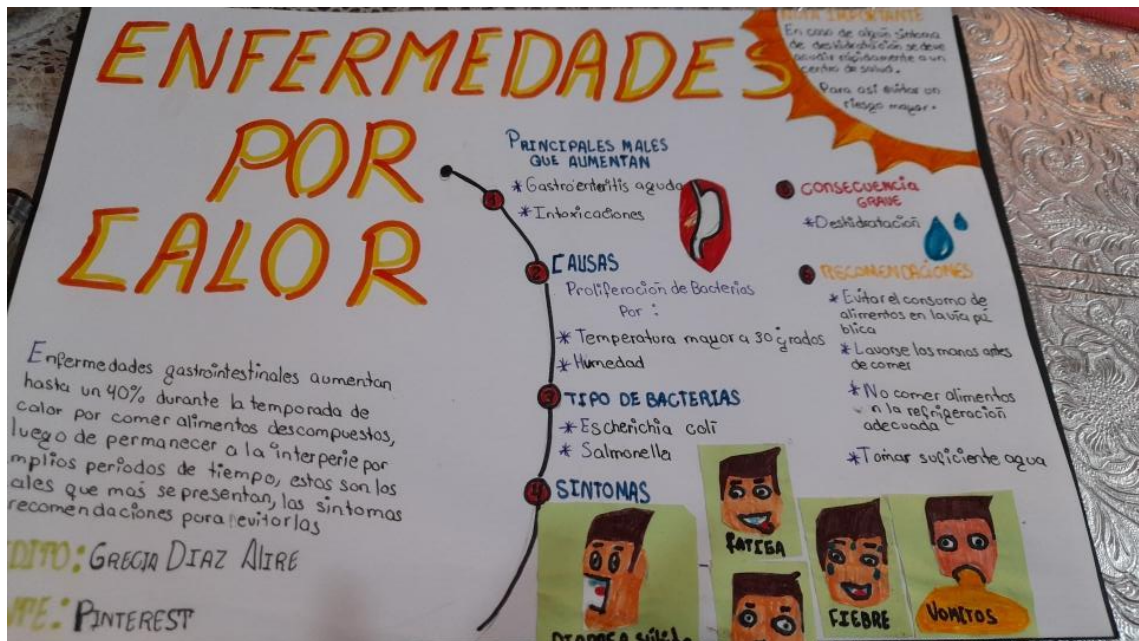 ENFERMEDADES
POR
CALOR
NOTA IMPORTANTE
En caso de algun sintoma
de deshidratación se deve
acudir rápidamente a un
centro de salud.
Para así evitar un
riesgo mayor.
Enfermedades gastrointestinales aumentan
hasta un 40% durante la temporada de
calor por comer alimentos descompuestos,
luego de permanecer a la interperie por
mplios periodos de tiempo, estos son los
ales que mas se presentan, las sintomas
recomendaciones para evitarlas
DITO: GRECIA DIAZ ALIRE
NTE: PINTEREST
1
PRINCIPALES MALES
QUE AUMENTAN
* Gastroenteritis aguda
* Intoxicaciones
2 CAUSAS
Proliferación de Bacterias
Por :
* Temperatura mayor a 30 grados
* Humedad
3 TIPO DE BACTERIAS
* Escherichia coli
* Salmonella
4 SINTOMAS
FATIGA
FIEBRE
VOMITOS
CONSECUENCIA
GRAVE
* Deshidratación
RECOMENDACIONES
* Evitar el consumo de
alimentos en la via pú
blica
* Lavarse las manos antes
de comer
* No comer alimentos
n la refrigeración
adecuada
* Tomar suficiente agua